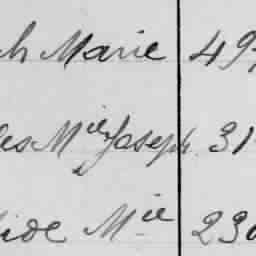 ch Marie 497
les Mie Joseph 31
ide Mie 230